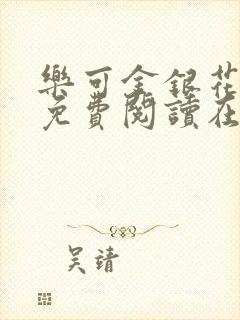 樂可金銀花
免費閱讀在
吴靖